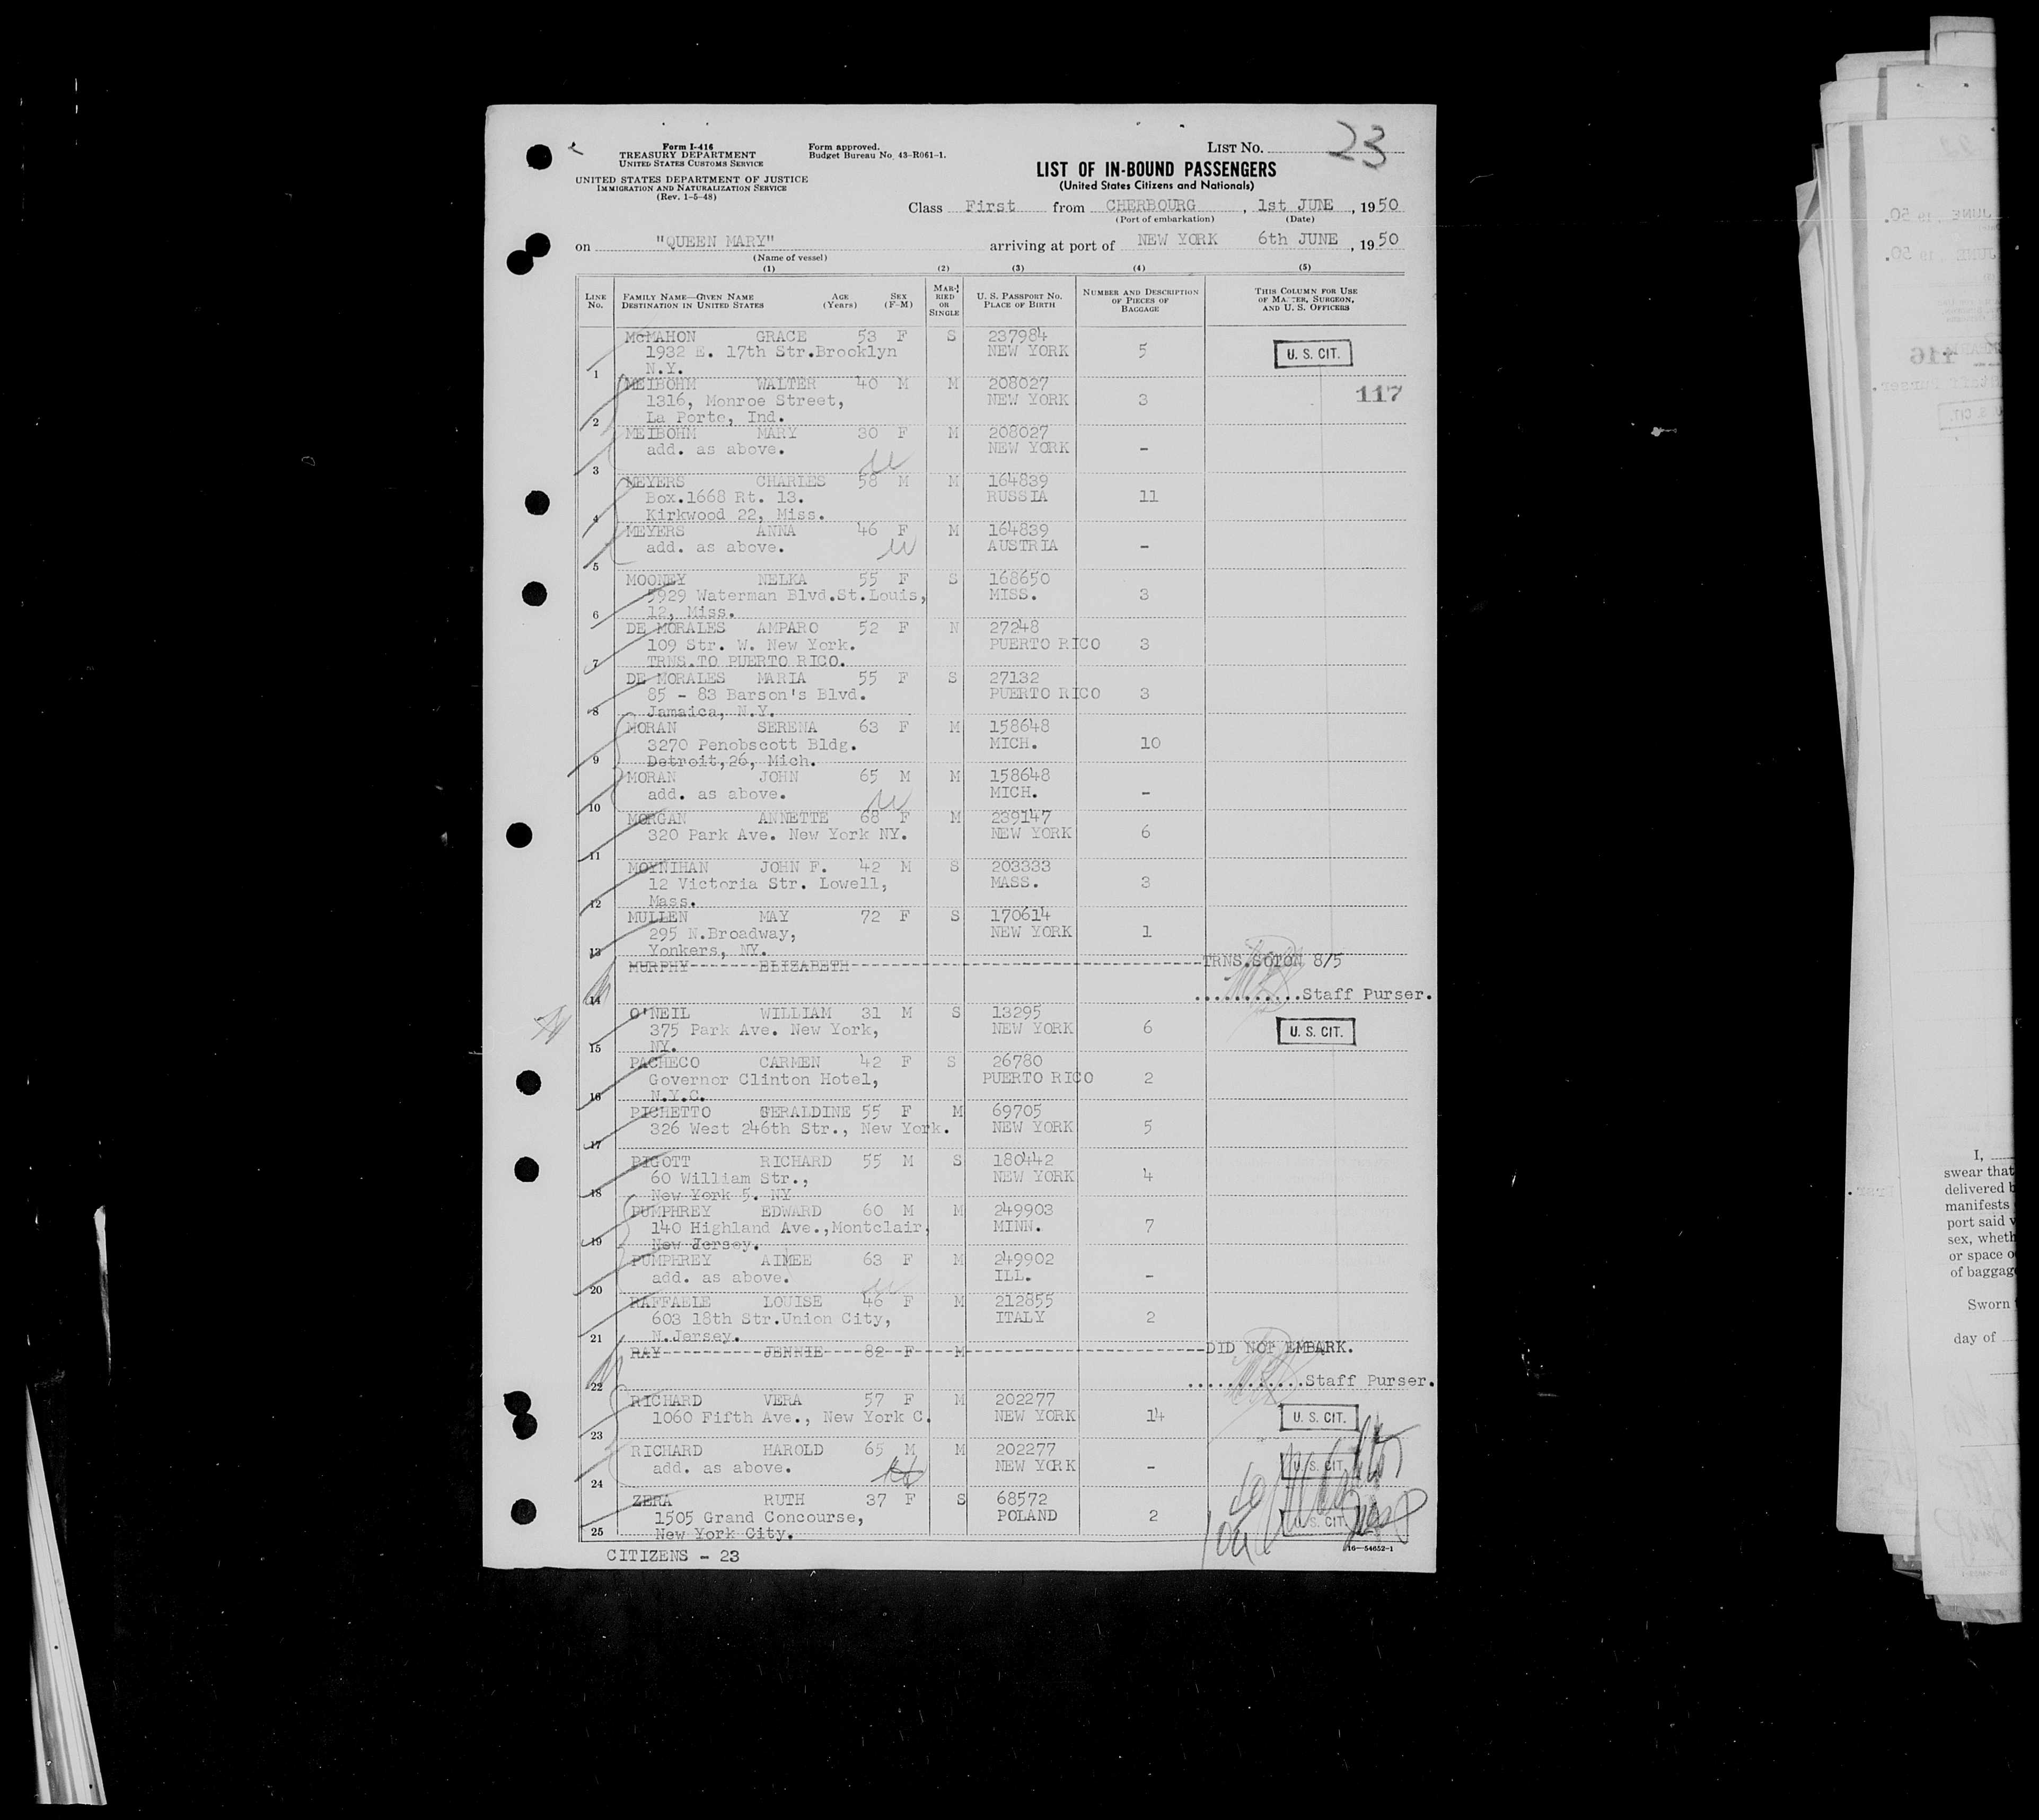 Form I-416
TREASURY DEPARTMENT
UNITED STATES CUSTOMS SERVICE
UNITED STATES DEPARTMENT OF JUSTICE
IMMIGRATION AND NATURALIZATION SERVICE
(Rev. 1-5-48)
Form approved.
Budget Bureau No. 43-R061-1.
LIST No. 23
LIST OF IN-BOUND PASSENGERS
(United States Citizens and Nationals)
Class First from CHERBOURG, 1st JUNE, 1950
(Port of embarkation) (Date)
on "QUEEN MARY" arriving at port of NEW YORK 6th JUNE, 1950
(Name of vessel)
(1) (2) (3) (4) (5)
LINE No. FAMILY NAME—GIVEN NAME DESTINATION IN UNITED STATES AGE (Years) SEX (F-M) MARRIED OR SINGLE U. S. PASSPORT No. PLACE OF BIRTH NUMBER AND DESCRIPTION OF PIECES OF BAGGAGE THIS COLUMN FOR USE OF MASTER, SURGEON, AND U. S. OFFICERS
McMAHON GRACE 53 F S 237984
1932 E. 17th Str.Brooklyn NEW YORK 5 U. S. CIT.
1 N.Y.
MEIBOHM WALTER 40 M M 208027
1316, Monroe Street, NEW YORK 3 117
2 La Porte, Ind.
MEIBOHM MARY 30 F M 208027
add. as above. NEW YORK -
3
MEYERS CHARLES 58 M M 164839
Box.1668 Rt. 13. RUSSIA 11
4 Kirkwood 22, Miss.
MEYERS ANNA 46 F M 164839
add. as above. AUSTRIA -
5
MOONEY NELKA 55 F S 168650
5929 Waterman Blvd.St.Louis, MISS. 3
6 12, Miss.
DE MORALES AMPARO 52 F N 27248
109 Str. W. New York. PUERTO RICO 3
7 TRNS.TO PUERTO RICO.
DE MORALES MARIA 55 F S 27132
85 - 83 Barson's Blvd. PUERTO RICO 3
8 Jamaica, N.Y.
MORAN SERENA 63 F M 158648
3270 Penobscott Bldg. MICH. 10
9 Detroit,26, Mich.
MORAN JOHN 65 M M 158648
add. as above. MICH. -
10
MORGAN ANNETTE 68 F M 239147
320 Park Ave. New York NY. NEW YORK 6
11
MOYNIHAN JOHN F. 42 M S 203333
12 Victoria Str. Lowell, MASS. 3
12 Mass.
MULLEN MAY 72 F S 170614
295 N.Broadway, NEW YORK 1
13 Yonkers, NY.
MURPHY ELIZABETH TRNS.SOTON 8/5
14 ...........Staff Purser.
O'NEIL WILLIAM 31 M S 13295
375 Park Ave. New York, NEW YORK 6 U. S. CIT.
15 NY.
PACHECO CARMEN 42 F S 26780
Governor Clinton Hotel, PUERTO RICO 2
16 N.Y.C.
PICHETTO GERALDINE 55 F M 69705
326 West 246th Str., New York. NEW YORK 5
17
PIGOTT RICHARD 55 M S 180442
60 William Str., NEW YORK 4
18 New York 5. NY
PUMPHREY EDWARD 60 M M 249903
140 Highland Ave.,Montclair, MINN. 7
19 New Jersey.
PUMPHREY AIMEE 63 F M 249902
add. as above. ILL. -
20
RAFFAELE LOUISE 46 F M 212855
603 18th Str.Union City, ITALY 2
21 N.Jersey.
RAY JENNIE 82 F M DID NOT EMBARK.
22 ............Staff Purser.
RICHARD VERA 57 F M 202277
1060 Fifth Ave., New York C. NEW YORK 14 U. S. CIT.
23
RICHARD HAROLD 65 M M 202277
add. as above. NEW YORK - U. S. CIT.
24
ZERA RUTH 37 F S 68572
1505 Grand Concourse, POLAND 2 U. S. CIT.
25 New York City.
CITIZENS - 23
16—54652-1
I,
swear that
delivered
manifests
port said
sex,
or space
of
Sworn
day of